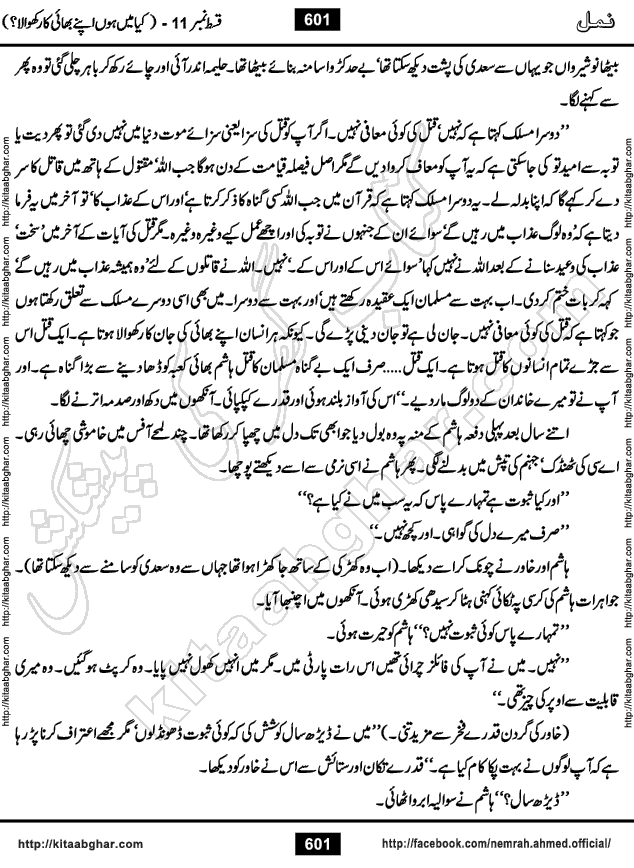 قسط نمبر 11 - ( کیا میں ہوں اپنے بھائی کا رکھوالا؟)
601
نمل
بیٹھا نوشیرواں جو یہاں سے سعدی کی پشت دیکھ سکتا تھا، بے حد کڑوا سا منہ بنائے بیٹھا تھا۔ حلیمہ اندر آئی اور چائے رکھ کر باہر چلی گئی تو وہ پھر
سے کہنے لگا۔
’’دوسرا مسلک کہتا ہے کہ نہیں، قتل کی کوئی معافی نہیں۔ اگر آپ کو قتل کی سزا یعنی سزائے موت دنیا میں نہیں دی گئی تو پھر دیت یا
توبہ سے امید تو کی جا سکتی ہے کہ یہ آپ کو معاف کروا دیں گے مگر اصل فیصلہ قیامت کے دن ہو گا جب اللہ مقتول کے ہاتھ میں قاتل کا سر
دے کر کہے گا کہ اپنا بدلہ لے۔ یہ دوسرا مسلک کہتا ہے کہ قرآن میں جب اللہ کسی گناہ کا ذکر کرتا ہے، اور اس کے عذاب کا، تو آخر میں یہ فرما
دیتا ہے کہ، وہ لوگ عذاب میں رہیں گے، سوائے ان کے جنہوں نے توبہ کی اور اچھے عمل کیے وغیرہ وغیرہ۔ مگر قتل کی آیات کے آخر میں، سخت،
عذاب کی وعید سنانے کے بعد اللہ نے نہیں کہا، سوائے اس کے اور اس کے۔، نہیں۔ اللہ نے قاتلوں کے لئے، وہ ہمیشہ عذاب میں رہیں گے،
کہہ کر بات ختم کر دی۔ اب بہت سے مسلمان ایک عقیدہ رکھتے ہیں، اور بہت سے دوسرا۔ میں بھی اسی دوسرے مسلک سے تعلق رکھتا ہوں
جو کہتا ہے کہ قتل کی کوئی معافی نہیں۔ جان لی ہے تو جان دینی پڑے گی۔ کیونکہ ہر انسان اپنے بھائی کی جان کا رکھوالا ہوتا ہے۔ ایک قتل اس
سے جڑے تمام انسانوں کا قتل ہوتا ہے۔ ایک قتل..... صرف ایک بے گناہ مسلمان کا قتل ہاشم بھائی کعبہ کو ڈھا دینے سے بڑا گناہ ہے۔ اور
آپ نے تو میرے خاندان کے دو لوگ مار دیے۔‘‘ اس کی آواز بلند ہوئی اور قدرے کپکپائی۔ آنکھوں میں دکھ اور صدمہ اترنے لگا۔
اتنے سال بعد پہلی دفعہ ہاشم کے منہ پہ وہ بول دیا جو ابھی تک دل میں چھپا کر رکھا تھا۔ چند لمحے آفس میں خاموشی چھائی رہی۔
اے سی کی ٹھنڈک، جہنم کی تپش میں بدلنے لگی۔ پھر ہاشم نے اسی نرمی سے اسے دیکھتے پوچھا۔
’’اور کیا ثبوت ہے تمہارے پاس کہ یہ سب میں نے کیا ہے؟‘‘
’’صرف میرے دل کی گواہی۔ اور کچھ نہیں۔‘‘
ہاشم اور خاور نے چونک کر اسے دیکھا۔ (اب وہ کھڑکی کے ساتھ جا کھڑا ہوا تھا جہاں سے وہ سعدی کو سامنے سے دیکھ سکتا تھا)۔
جواہرات ہاشم کی کرسی پہ ٹکائی کہنی ہٹا کر سیدھی کھڑی ہوئی۔ آنکھوں میں اچنبھا آیا۔
’’تمہارے پاس کوئی ثبوت نہیں؟‘‘ ہاشم کو حیرت ہوئی۔
’’نہیں۔ میں نے آپ کی فائلز چرائی تھیں اس رات پارٹی میں۔ مگر میں انہیں کھول نہیں پایا۔ وہ کرپٹ ہو گئیں۔ وہ میری
قابلیت سے اوپر کی چیز تھی۔‘‘
(خاور کی گردن قدرے فخر سے مزید تنی۔)’’میں نے ڈیڑھ سال کوشش کی کہ کوئی ثبوت ڈھونڈ لوں، مگر مجھے اعتراف کرنا پڑ رہا
ہے کہ آپ لوگوں نے بہت پکا کام کیا ہے۔‘‘ قدرے تکان اور ستائش سے اس نے خاور کو دیکھا۔
’’ڈیڑھ سال؟‘‘ ہاشم نے سوالیہ ابرو اٹھائی۔
http://kitaabghar.com http://kitaabghar.com http://kitaabghar.com http://kitaabghar.com
http://kitaabghar.com http://kitaabghar.com http://kitaabghar.com http://kitaabghar.com
کتاب گھر کی پیشکش
kitaabghar.com
http://kitaabghar.com
601
http://facebook.com/nemrah.ahmed.official/